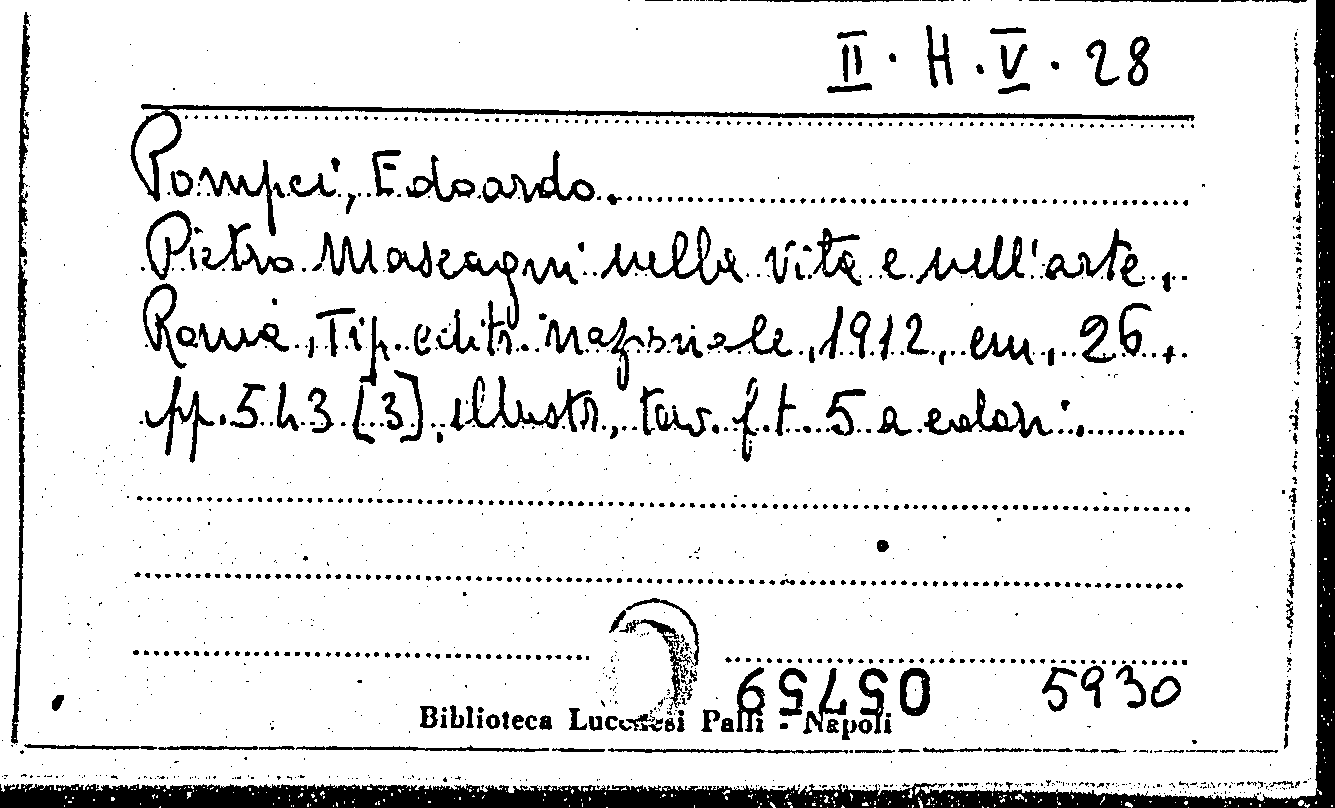 II. H. V. 28
Pompei, Edoardo.
Pietro Mascagni nella vita e nell'arte,
Roma, Tip. editr. nazionale, 1912, cm. 26,
pp. 543 [3], illustr, tav. f. t. 5 a colori.
05759 5930
Biblioteca Lucchesi Palli - Napoli